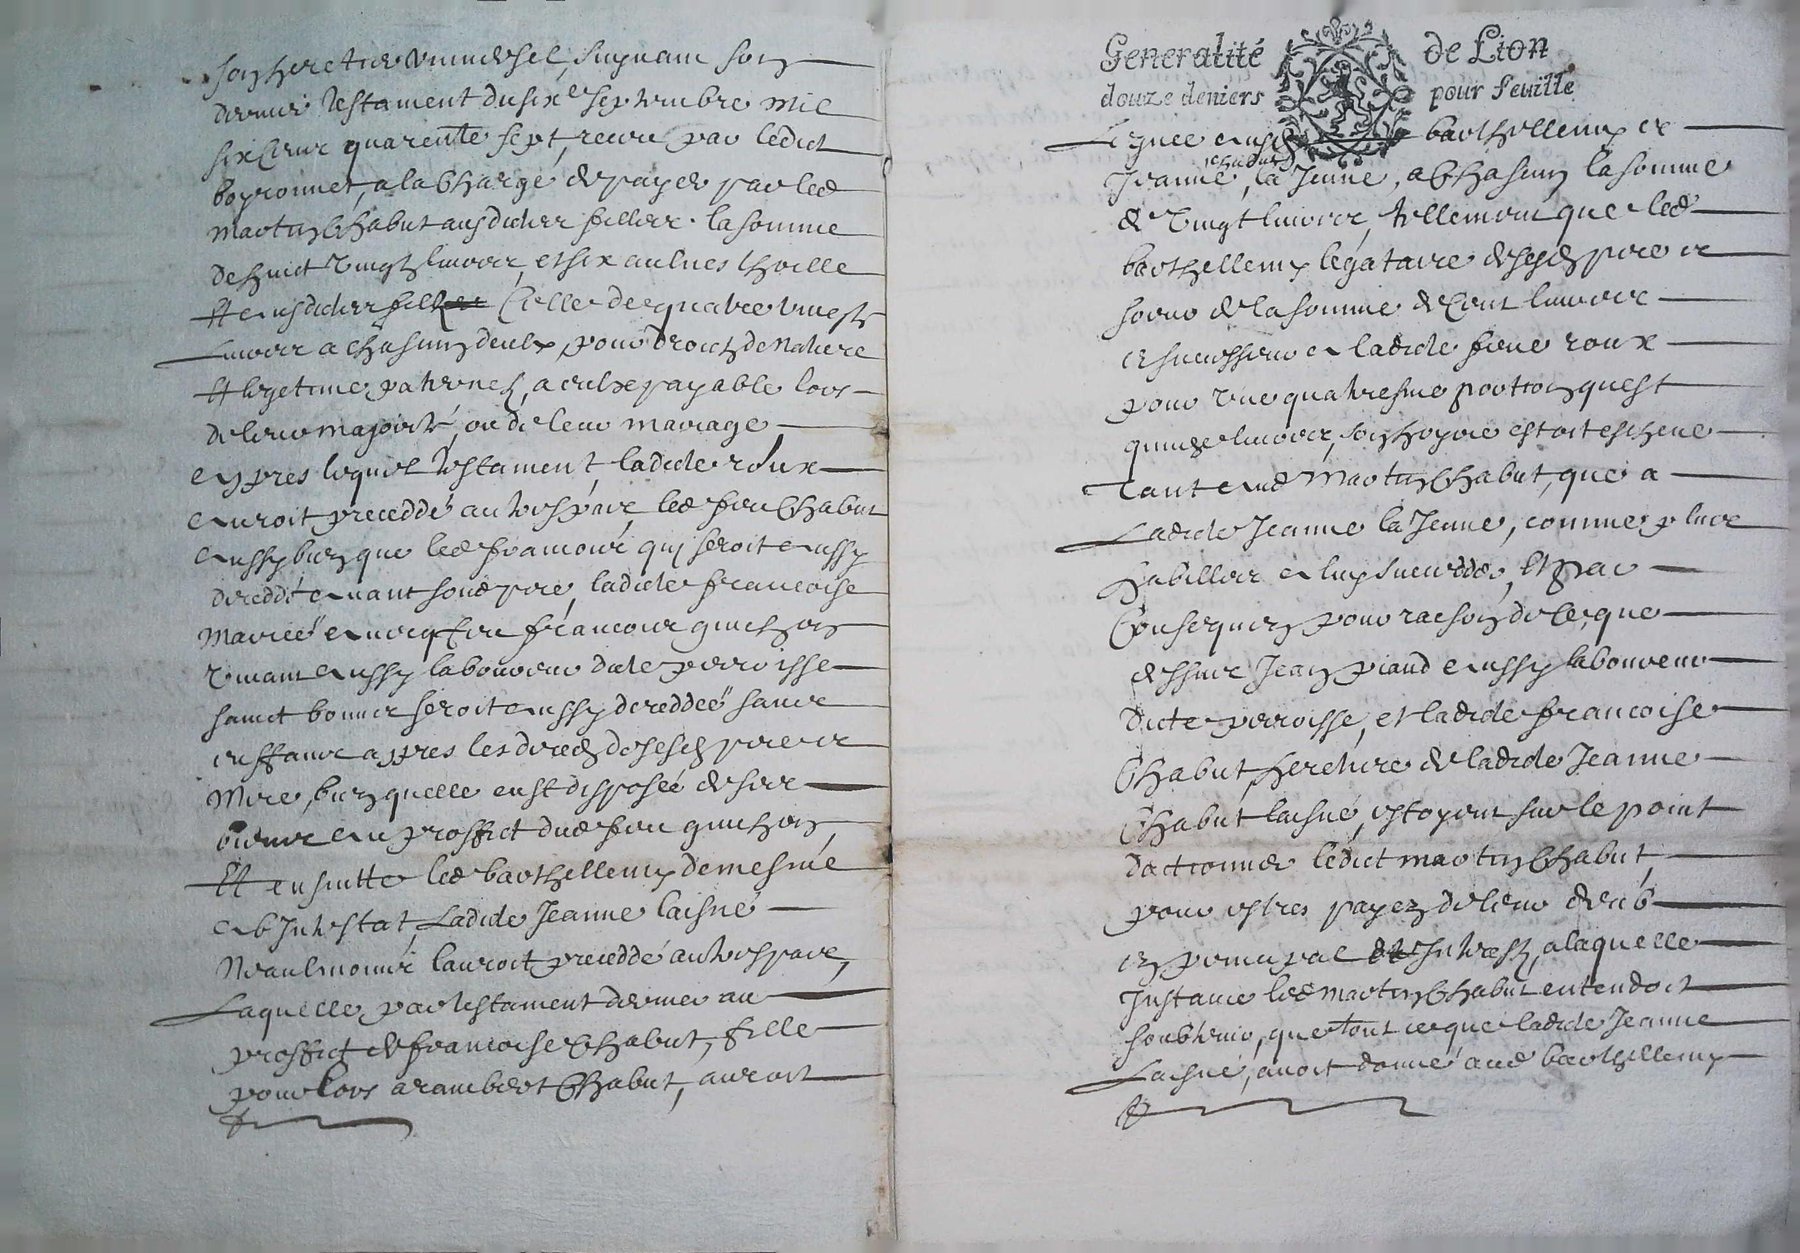 son heretier universel, suyvant son
dernier testament du six.e septembre mil
six cens quarente sept, receu par ledict
boyronnet, a la charge de payer par led
Martin Chabut ausdictes filles la somme
de huict vingtz livres, et six aulnes thoille
Et ausdictes filz celle de quatre vingtz
Livres a chascun deulx, pour droictz de nature
Et legetime paternel, a eulx payable lors
de leur majorité, ou de leur mariage
appres lequel testament, ladicte roux
auroit preceddé led feu Chabut
aussy bien que led francois qui seroit aussy
deceddé avant sond pere, ladicte francoise
Mariée avecq feu francois guichon
vivant aussy laboureur dicte parroisse
sainct bonnet seroit aussy deceddeé sans
enffans appres les deces de sesd pere et
Mere, bien quelle eust disposée de ses
biens au proffict dud feu guichon,
Et ensuitte led barthellemy de mesme
ab Intestat, Ladicte Jeanne laisné
Neaulmoins lauroit preceddé
Laquelle par testament dernier au
proffict de francoise Chabut, fille
pour lors a rambert Chabut, auroit
Generalité de Lion
douze deniers pour feuille
barthellemy et
Chabut
Jeanne, la Jeune, a chascun la somme
de vingt livres, tellement que led
barthellemy legataire de sesd pere et
soeur de la somme de cent livres
et successeur a ladicte feue roux
pour une quatresme portion quest
quinze livres, son hoyrie estoit escheue
Tant aud Martin Chabut, que a
Ladicte Jeanne la Jeune, comme plus
habilles a luy succedder, Et par
Consequen pour raison de ce, que
dessus Jean piaud aussy laboureur
Dicte parroisse, et ladicte francoise
Chabut, heretiere de ladicte Jeanne
Chabut laisné, estoyent sur le point
dactionner ledict Martin Chabut,
pour estres payez de leur deub
en principal Intrestz, a laquelle
Instance led Martin Chabut entendoit
soubtenir, que tout ce que ladicte Jeanne
Laisné, avoit donné aud barthellemy